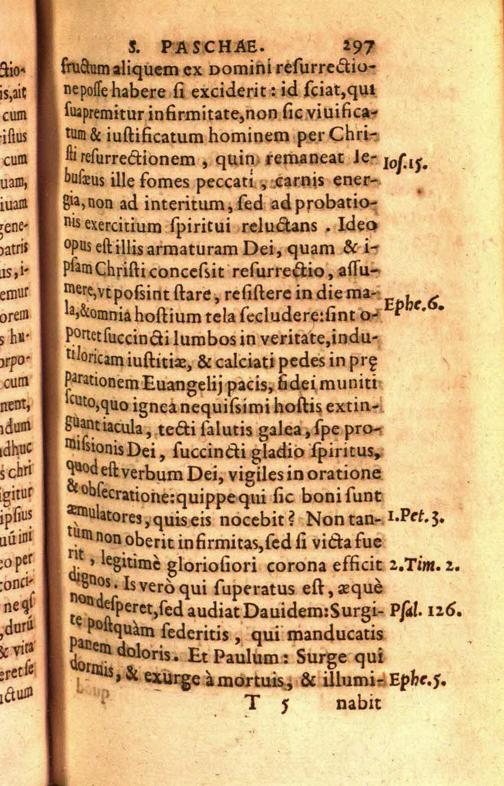 S. PASCHAE. 297
fructum aliquem ex Domini resurrectio-
ne posse habere si exciderit: id sciat, qui
sua premitur infirmitate, non sic viuifica-
tum & iustificatum hominem per Chri-
sti resurrectionem, quin remaneat Ie- Ios. 15.
busæus ille fomes peccati, carnis ener-
gia, non ad interitum, sed ad probatio-
nis exercitium spiritui reluctans. Ideo
opus est illis armaturam Dei, quam & i-
psam Christi concessit resurrectio, assu-
mere, vt possint stare, resistere in die ma-
la, & omnia hostium tela secludere: sint o- Ephe. 6.
portet succincti lumbos in veritate, indu-
ti loricam iustitiæ, & calciati pedes in prę
parationem Euangelij pacis, fidei muniti
scuto, quo ignea nequissimi hostis extin-
guant iacula, tecti salutis galea, spe pro-
missionis Dei, succincti gladio spiritus,
quod est verbum Dei, vigiles in oratione
& obsecratione: quippe qui sic boni sunt
æmulatores, quis eis nocebit? Non tan- 1. Pet. 3.
tùm non oberit infirmitas, sed si victa fue
rit, legitimè gloriosiori corona efficit 2. Tim. 2.
dignos. Is verò qui superatus est, æquè
non desperet, sed audiat Dauidem: Surgi- Psal. 126.
te postquàm sederitis, qui manducatis
panem doloris. Et Paulum: Surge qui
dormis, & exurge à mortuis, & illumi- Ephe. 5.
T 5 nabit
ctio-
is, ait
cum
ristus
cum
uam,
iuam
gene-
patris
us, i-
emur
orem
s hu-
orpo-
cum
nent,
ndum
dhuc
s chri
igitur
ipsius
uū ini
eo per
conci-
neqʒ
, durū
& vita
eret se
uctum